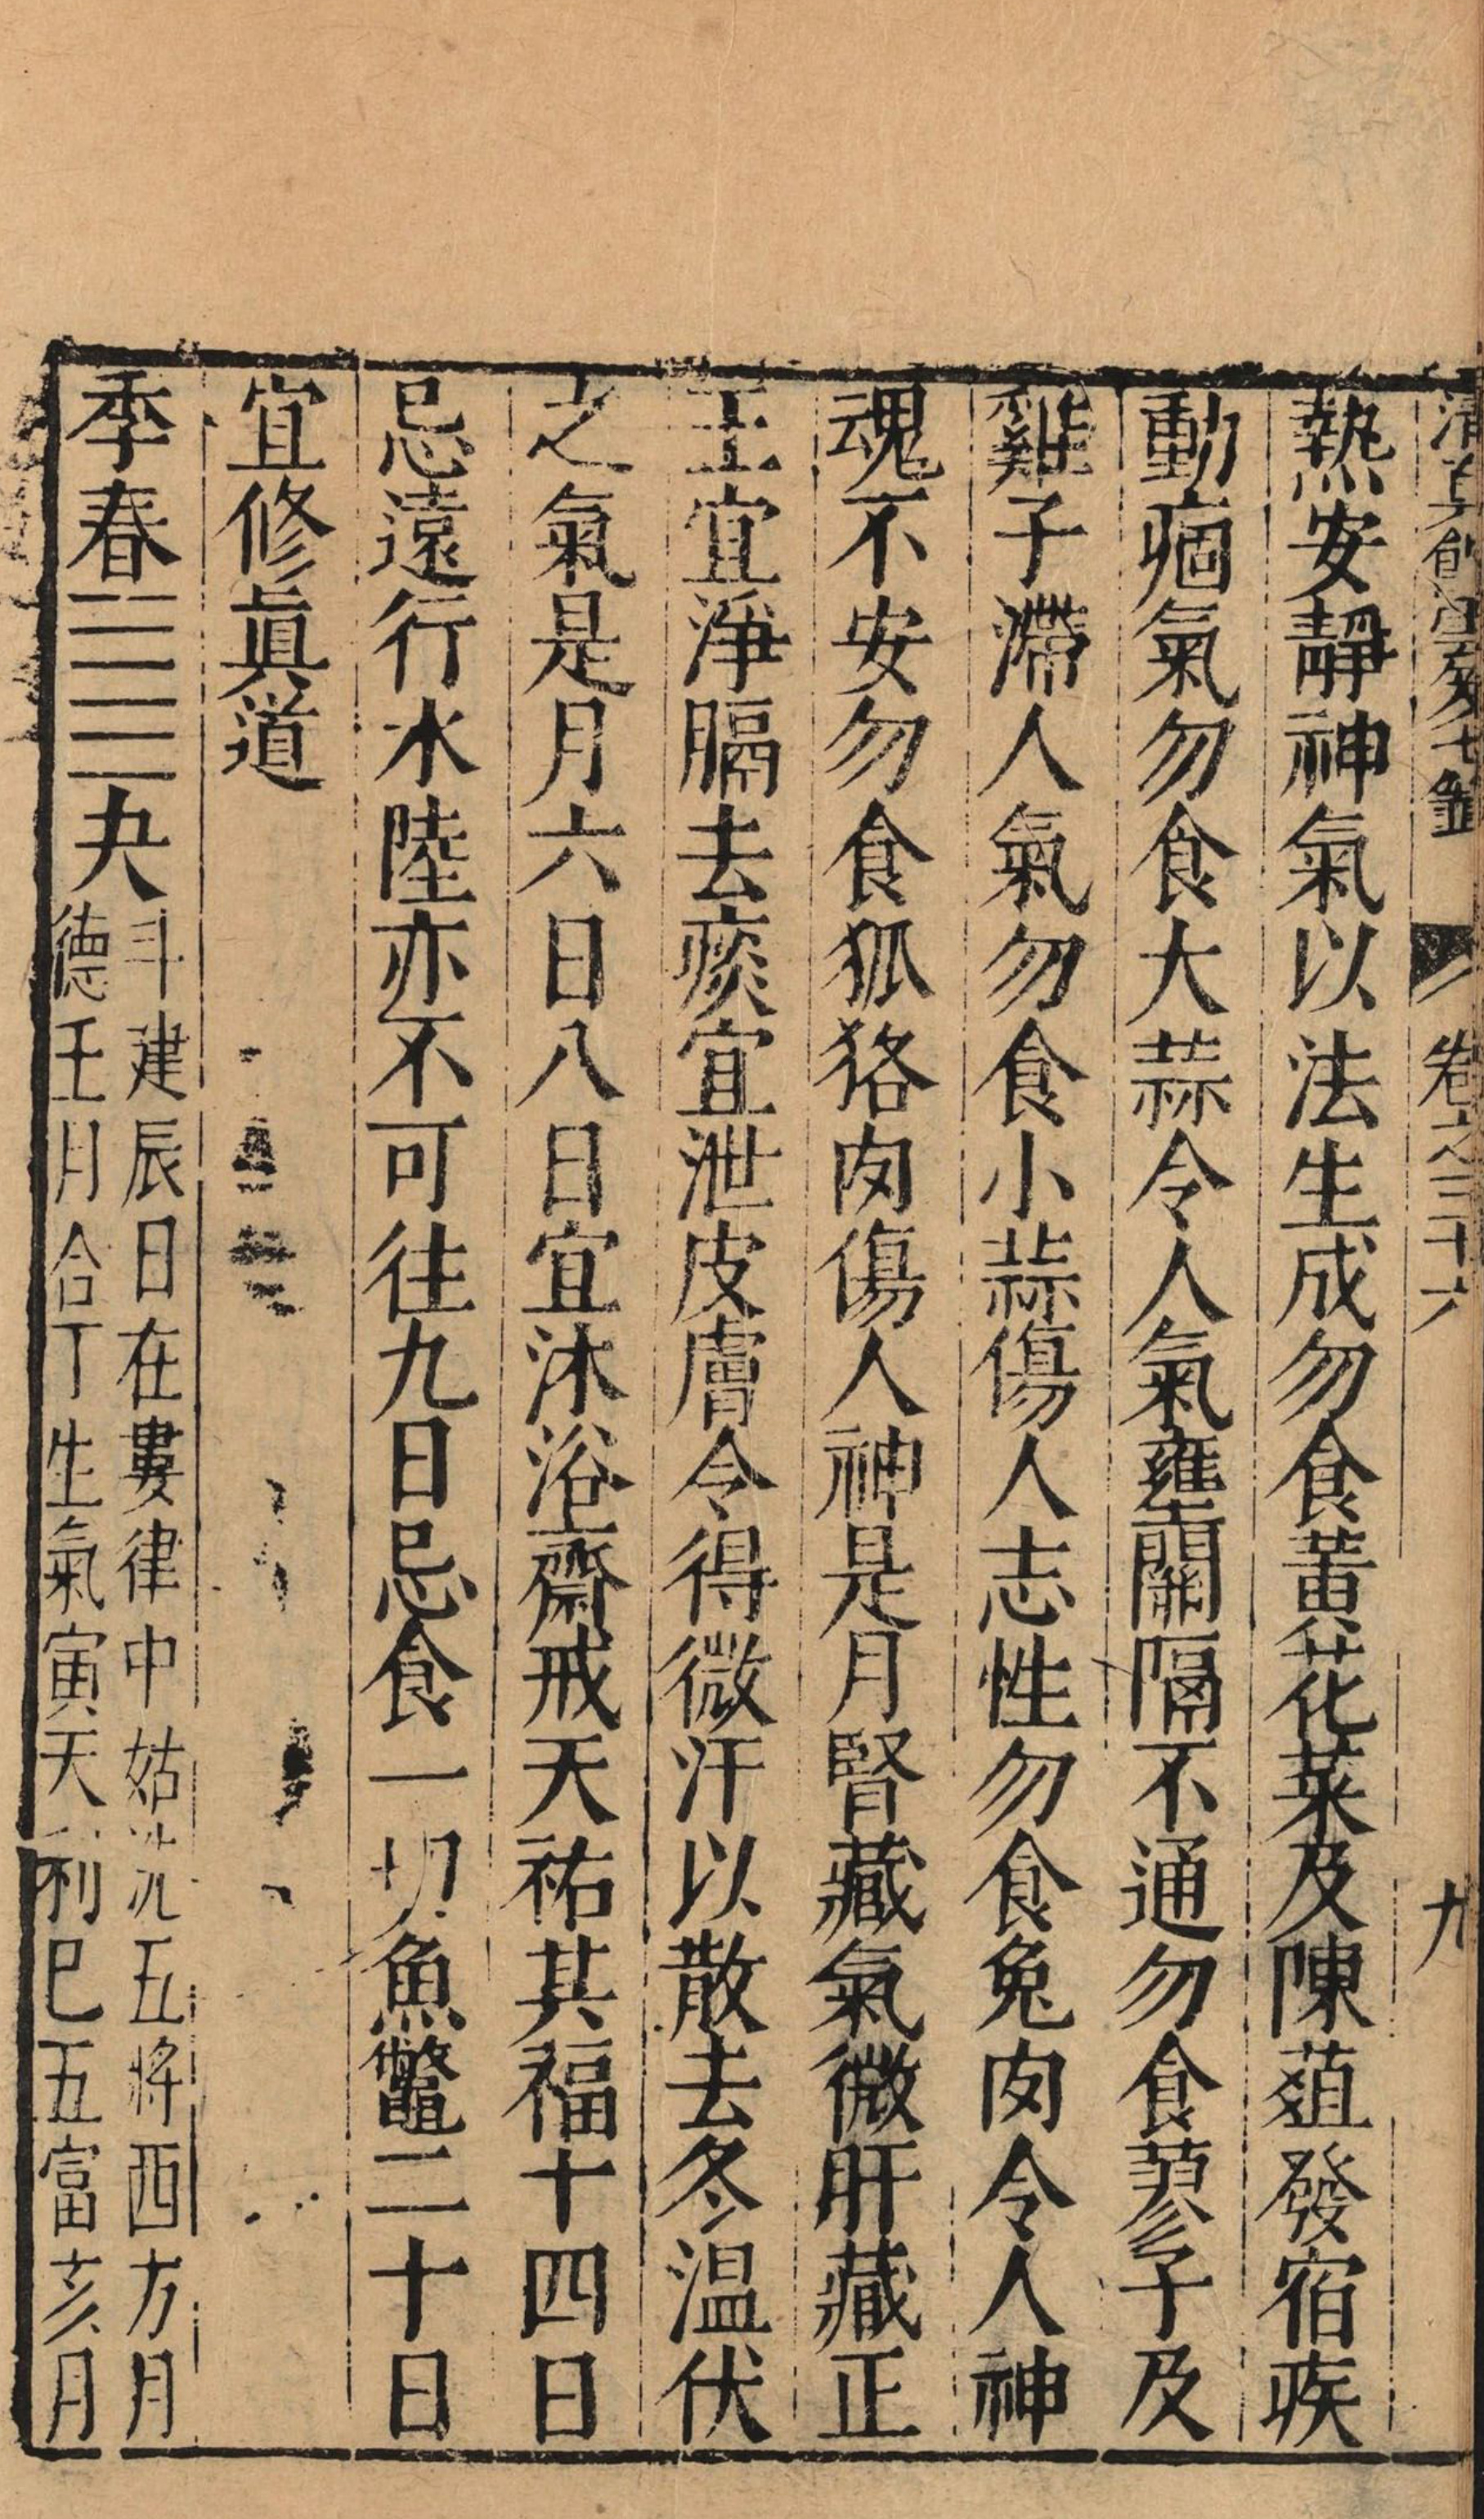 清真館雲笈七籤 卷之三十六 九
熱安靜神氣以法生成勿食黃花菜及陳葅發宿疾
動痼氣勿食大蒜令人氣壅關隔不通勿食蓼子及
雞子滯人氣勿食小蒜傷人志性勿食兔肉令人神
魂不安勿食狐狢肉傷人神是月腎藏氣微肝藏正
王宜淨膈去痰宜泄皮膚令得微汗以散去冬温伏
之氣是月六日八日宜沐浴齋戒天祐其福十四日
忌遠行水陸亦不可往九日忌食一切魚鼈二十日
宜修眞道
季春䷪夬斗建辰日在婁律中姑洗五將西方月
德壬月合丁生氣寅天利巳五富亥月